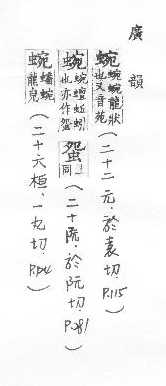 廣韻
蜿 蜿蜿龍狀也又音苑 （二十二元．於袁切．P.115）
蜿 蜿蟺蚯蚓也亦作䖤 䖤 同上 （二十阮．於阮切．P.281）
蜿 蟠蜿龍皃 （二十六桓．一丸切．P.124）